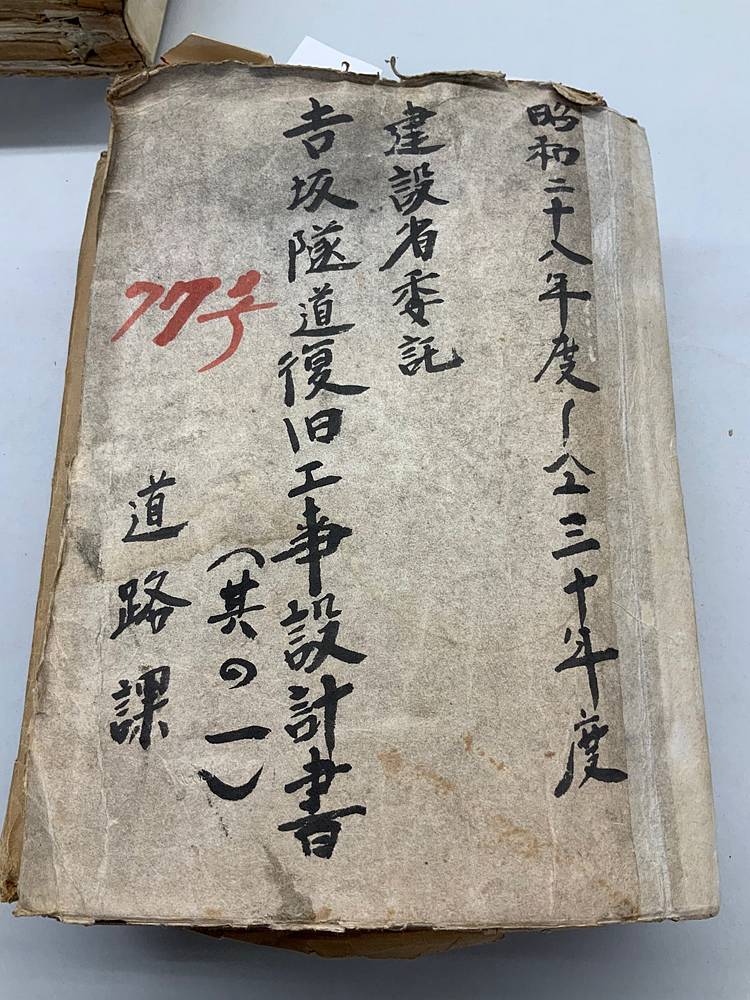 昭和二十八年度〜仝三十年度
建設省委託
吉坂隧道復旧工事設計書
(其の一)
77号
道路課